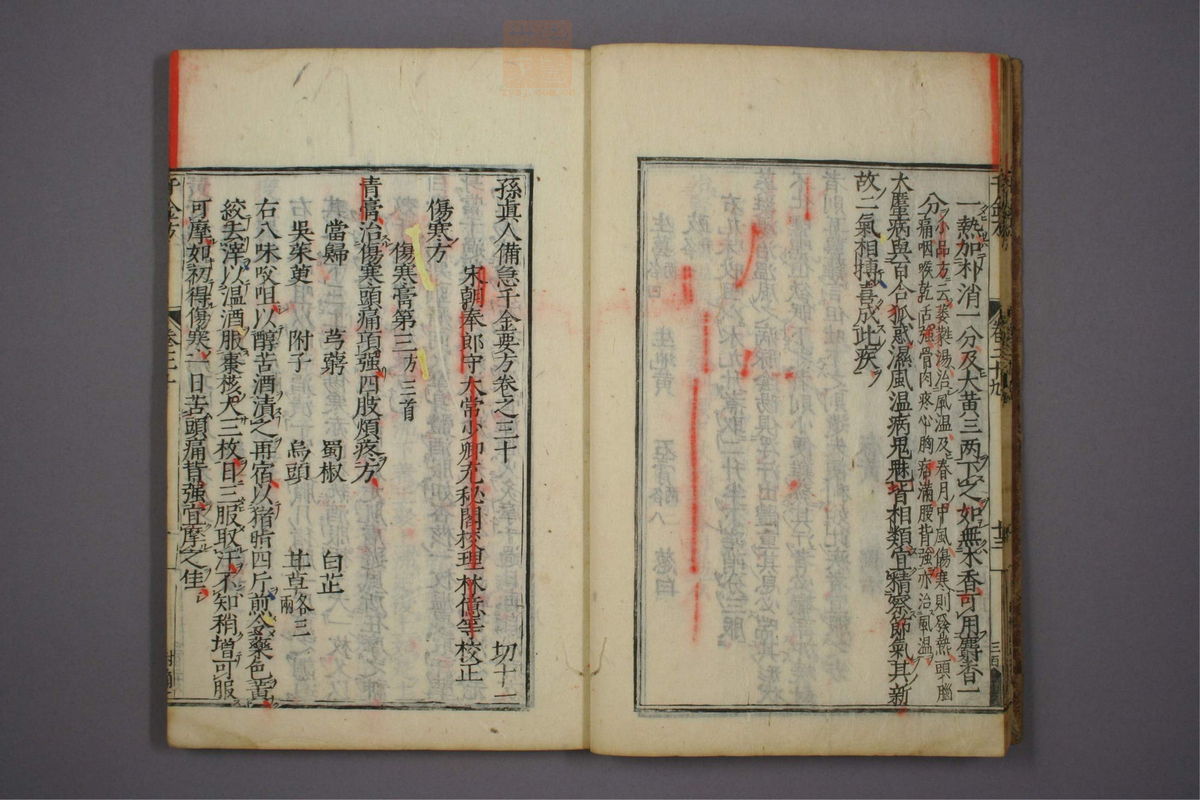 一熱加朴消一分及大黃三两下之如無木香可用麝香一
分小品方云葳蕤湯治風温及春月中風傷寒則發熱頭腦
痛咽喉乾舌強胷肉疼心胸痞滿腰背強亦治風温
大䘌病與百合狐惑濕風温病鬼魅皆相類宜精察節氣其新
故二氣相搏喜成此疾
卷二十九
廿三
孫真人備急千金要方卷之三十
宋朝奉郎守太常少卿充秘閣校理林億等校正
傷寒方
切十二
傷寒膏第三方三首
青膏治傷寒頭痛項強四肢煩疼方
當歸 芎藭 蜀椒 白芷
吳茱萸 附子 烏頭 甘草各三兩
右八味㕮咀以醇苦酒漬之再宿以猪脂四斤煎令藥色黃
絞去滓以温酒服棗核大三枚日三服取汗不知稍增可服
可摩如初得傷寒一日苦頭痛背強宜摩之佳
千金方
卷三十
一